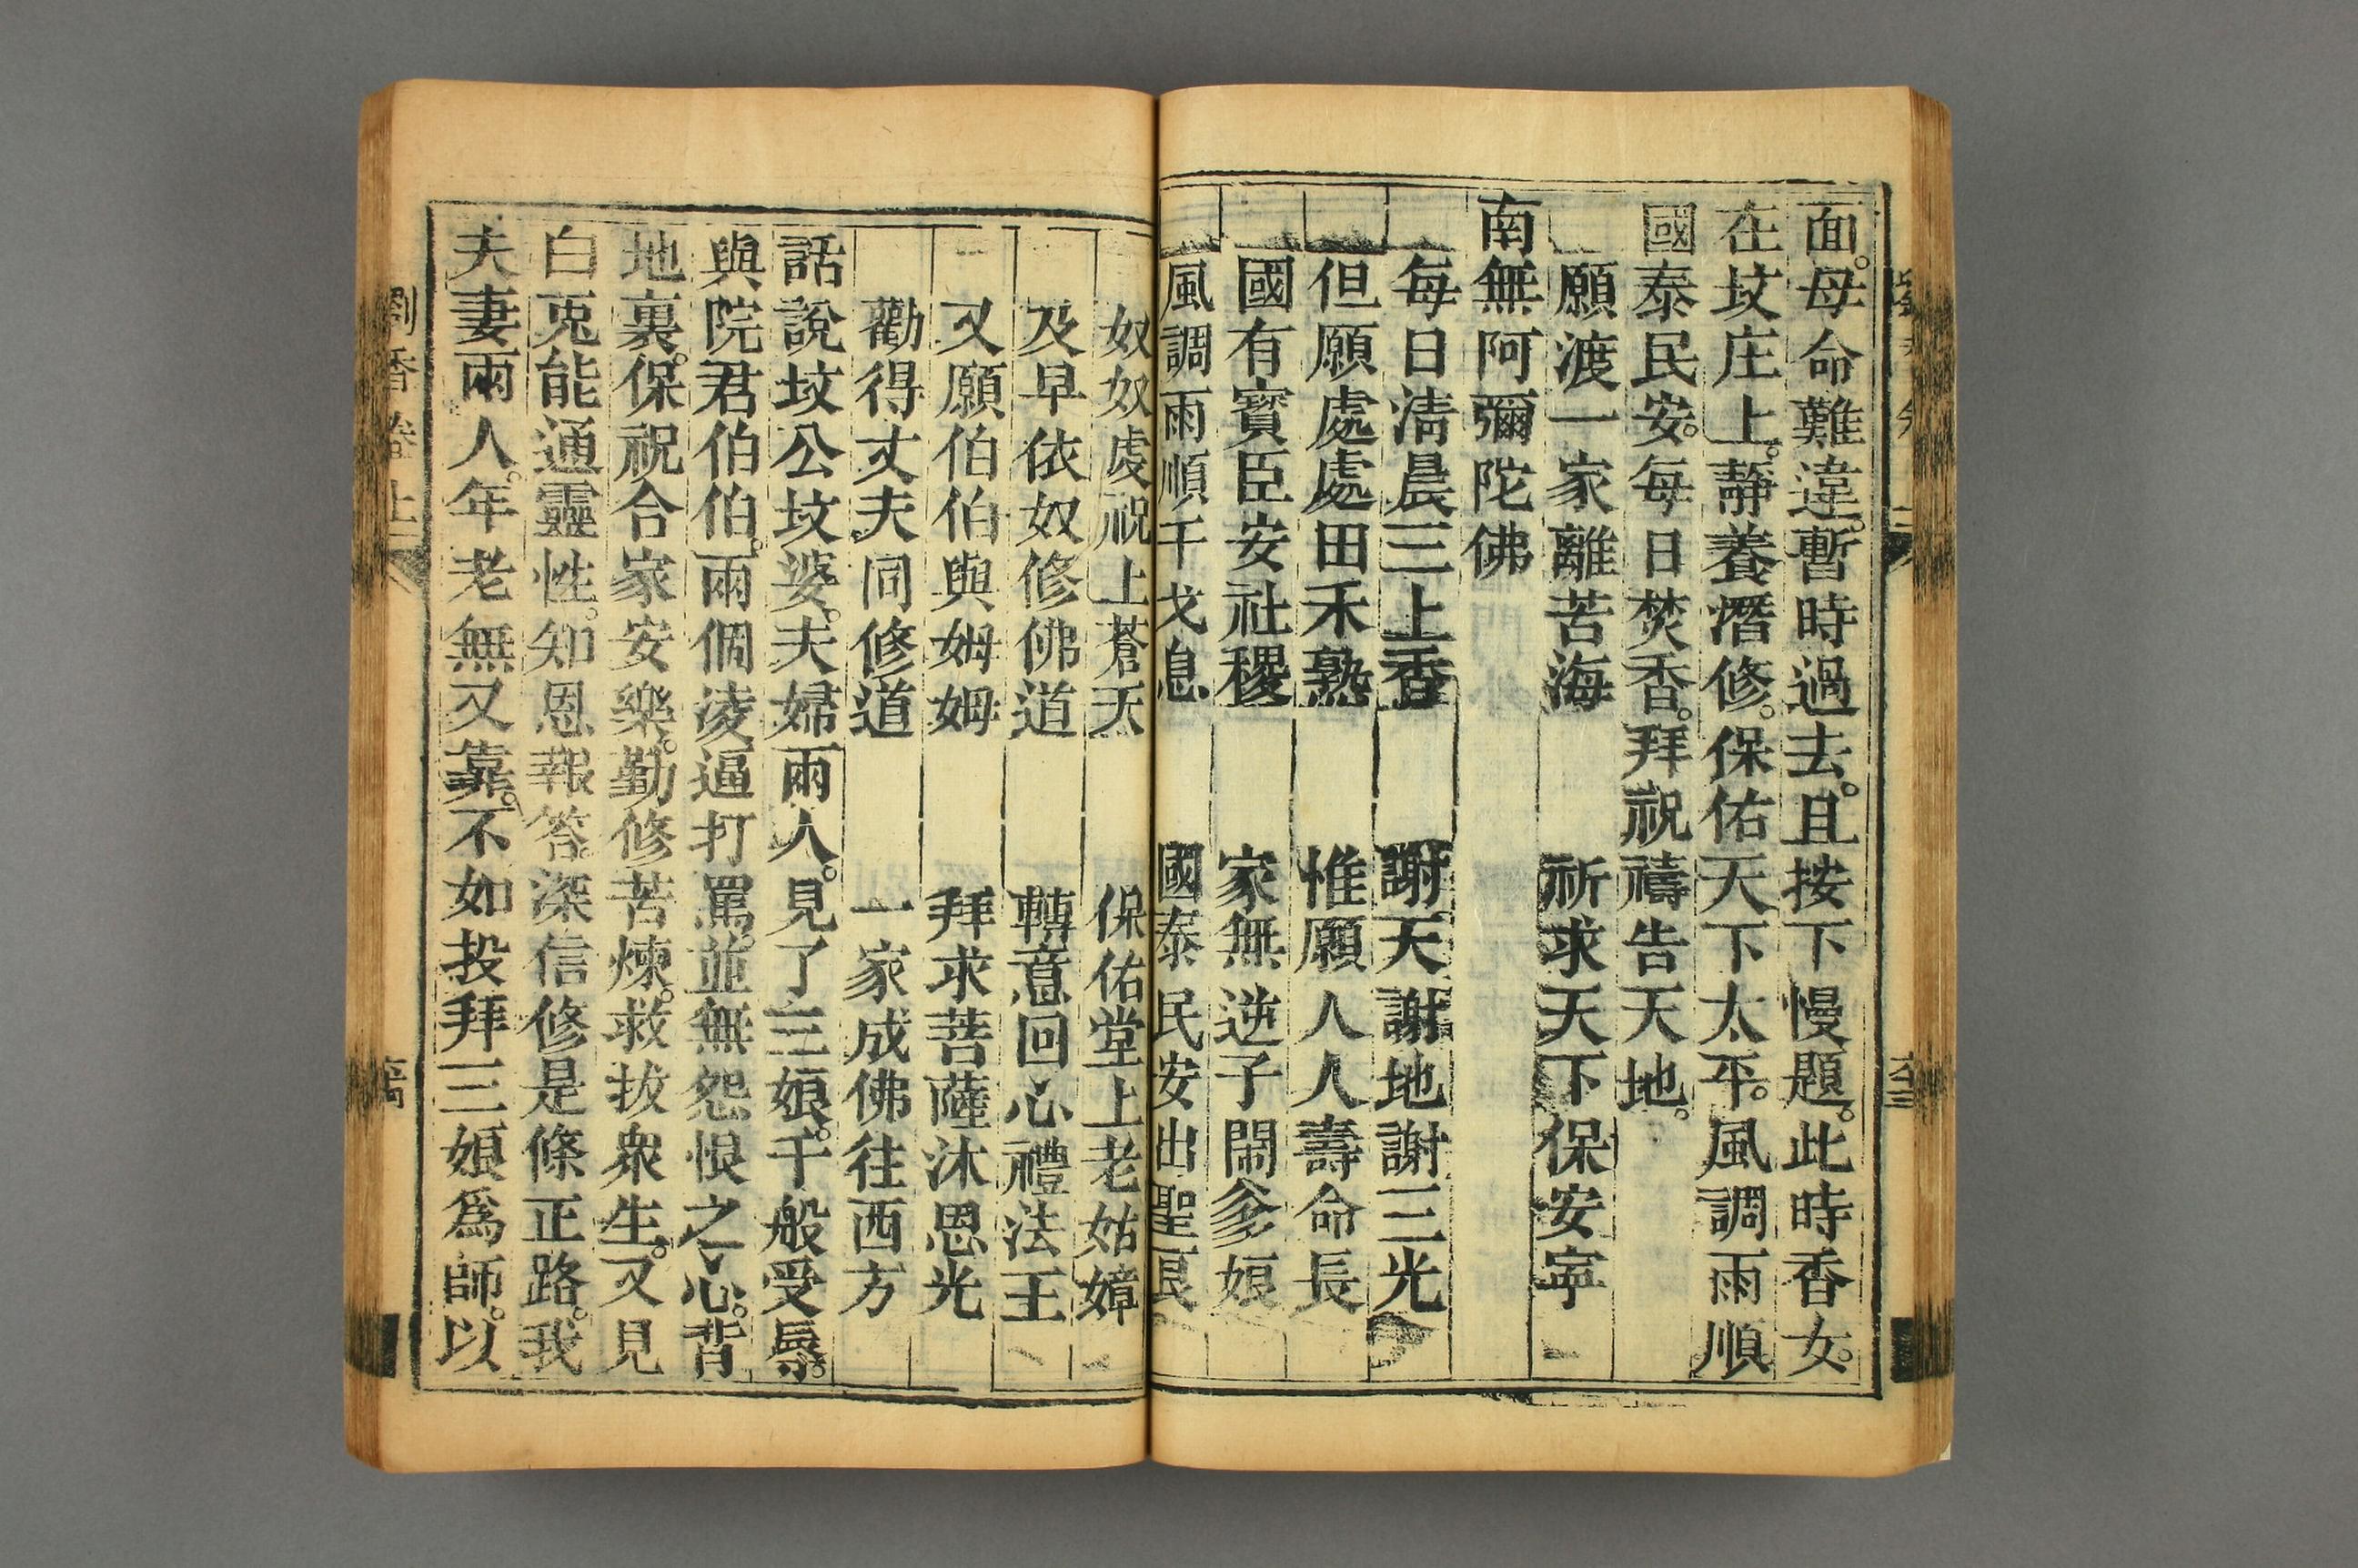 面。母命難違。暫時過去。且按下慢題。此時香女。
在坟庄上。靜養潛修。保佑天下太平。風調雨順。
國泰民安。每日焚香。拜祝禱告天地。
願渡一家離苦海 祈求天下保安寧
南無阿彌陀佛
每日淸晨三上香 謝天謝地謝三光
但願處處田禾熟 惟願人人壽命長
國有賓臣安社稷 家無逆子鬧爹娘
風調雨順干戈息 國泰民安出聖良
奴奴虔祝上蒼天 保佑堂上老姑嫜
及早依奴修佛道 轉意回心禮法王
又願伯伯與姆姆 拜求菩薩沐恩光
勸得丈夫同修道 一家成佛往西方
話說坟公坟婆。夫婦兩人。見了三娘。千般受辱。
與院君伯伯。兩個凌逼打罵。並無怨恨之心。背
地裏。保祝合家安樂。勤修苦煉。救拔衆生。又見
白兎能通靈性。知恩報答。深信修是條正路。我
夫妻兩人。年老無又靠。不如投拜三娘爲師。以
劉香卷上